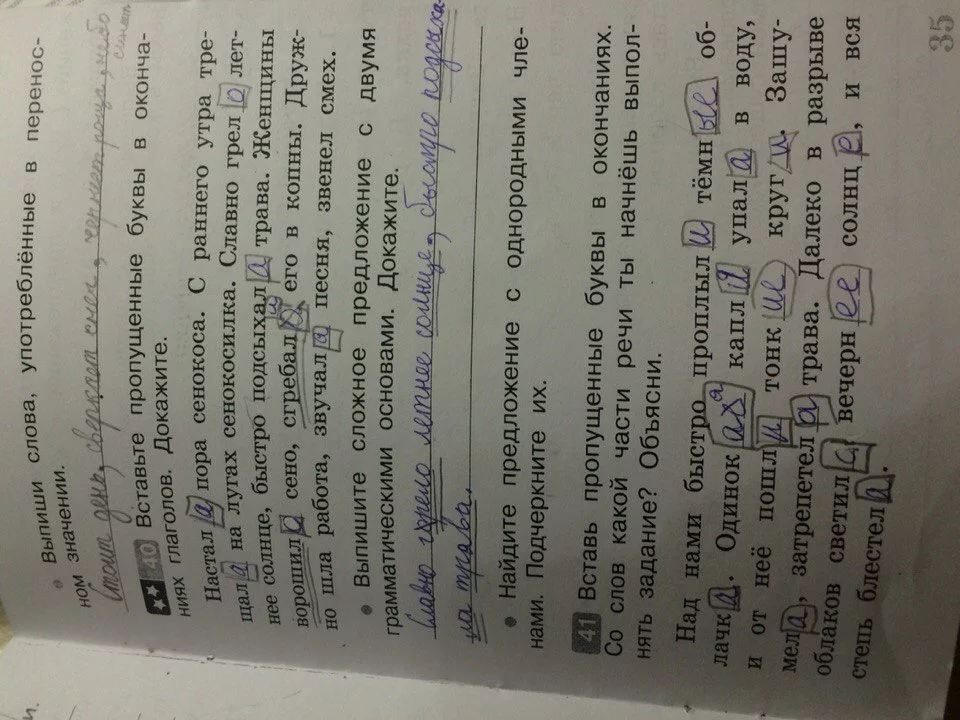 • Выпиши слова, употреблённые в перенос-
ном значении.
Стоит день, сверкает снег, чернеет роща, небо
синеет
40 Вставьте пропущенные буквы в оконча-
ниях глаголов. Докажите.
Настала пора сенокоса. С раннего утра тре-
щала на лугах сенокосилка. Славно грело лет-
нее солнце, быстро подсыхала трава. Женщины
ворошили сено, сгребали его в копны. Друж-
но шла работа, звучала песня, звенел смех.
• Выпишите сложное предложение с двумя
грамматическими основами. Докажите.
Славно грело летнее солнце, быстро подсыха-
ла трава.
• Найдите предложение с однородными чле-
нами. Подчеркните их.
41 Вставь пропущенные буквы в окончаниях.
Со слов какой части речи ты начнёшь выпол-
нять задание? Объясни.
Над нами быстро проплыли тёмные об-
лачка. Одинокая капля упала в воду,
и от неё пошли тонкие круги. Зашу-
мела, затрепетала трава. Далеко в разрыве
облаков светилось вечернее солнце, и вся
степь блестела.
35
и.